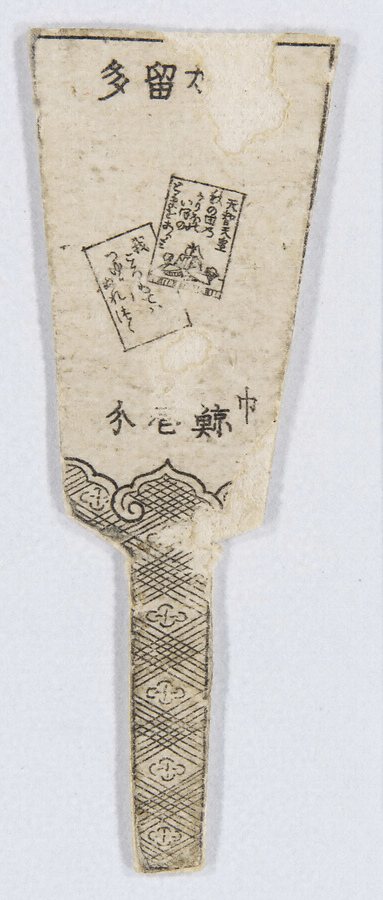 カ留多
天智天皇
秋の田の
かりほの
いほの
とまをあらみ
我
ころもては
つゆに
ぬれつゝ
巾
鯨壱分